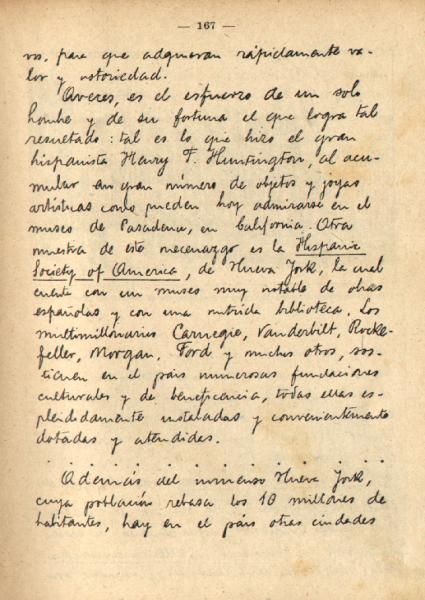 — 167 —
ros, para que adquieran rápidamente va-
lor y notoriedad.
Aveces, es el esfuerzo de un solo
hombre y de su fortuna el que logra tal
resultado: tal es lo que hizo el gran
hispanista Harry T. Huntington, al acu-
mular en gran número, de objetos y joyas
artísticas como pueden hoy admirarse en el
museo de Pasadena, en California. Otra
muestra de este mecenazgo es la Hispanic
Society of America, de Nueva York, la cual
cuenta con un museo muy notable de obras
españolas y con una nutrida biblioteca. Los
multimillonarios Carnegie, Vanderbilt, Rocke-
feller, Morgan, Ford y muchos otros, sos-
tienen en el país numerosas fundaciones
culturales y de beneficencia, todas ellas es-
plendidamente instaladas y convenientemente
dotadas y atendidas.
Además del inmenso Nueva York,
cuya población rebasa los 10 millones de
habitantes, hay en el país otras ciudades